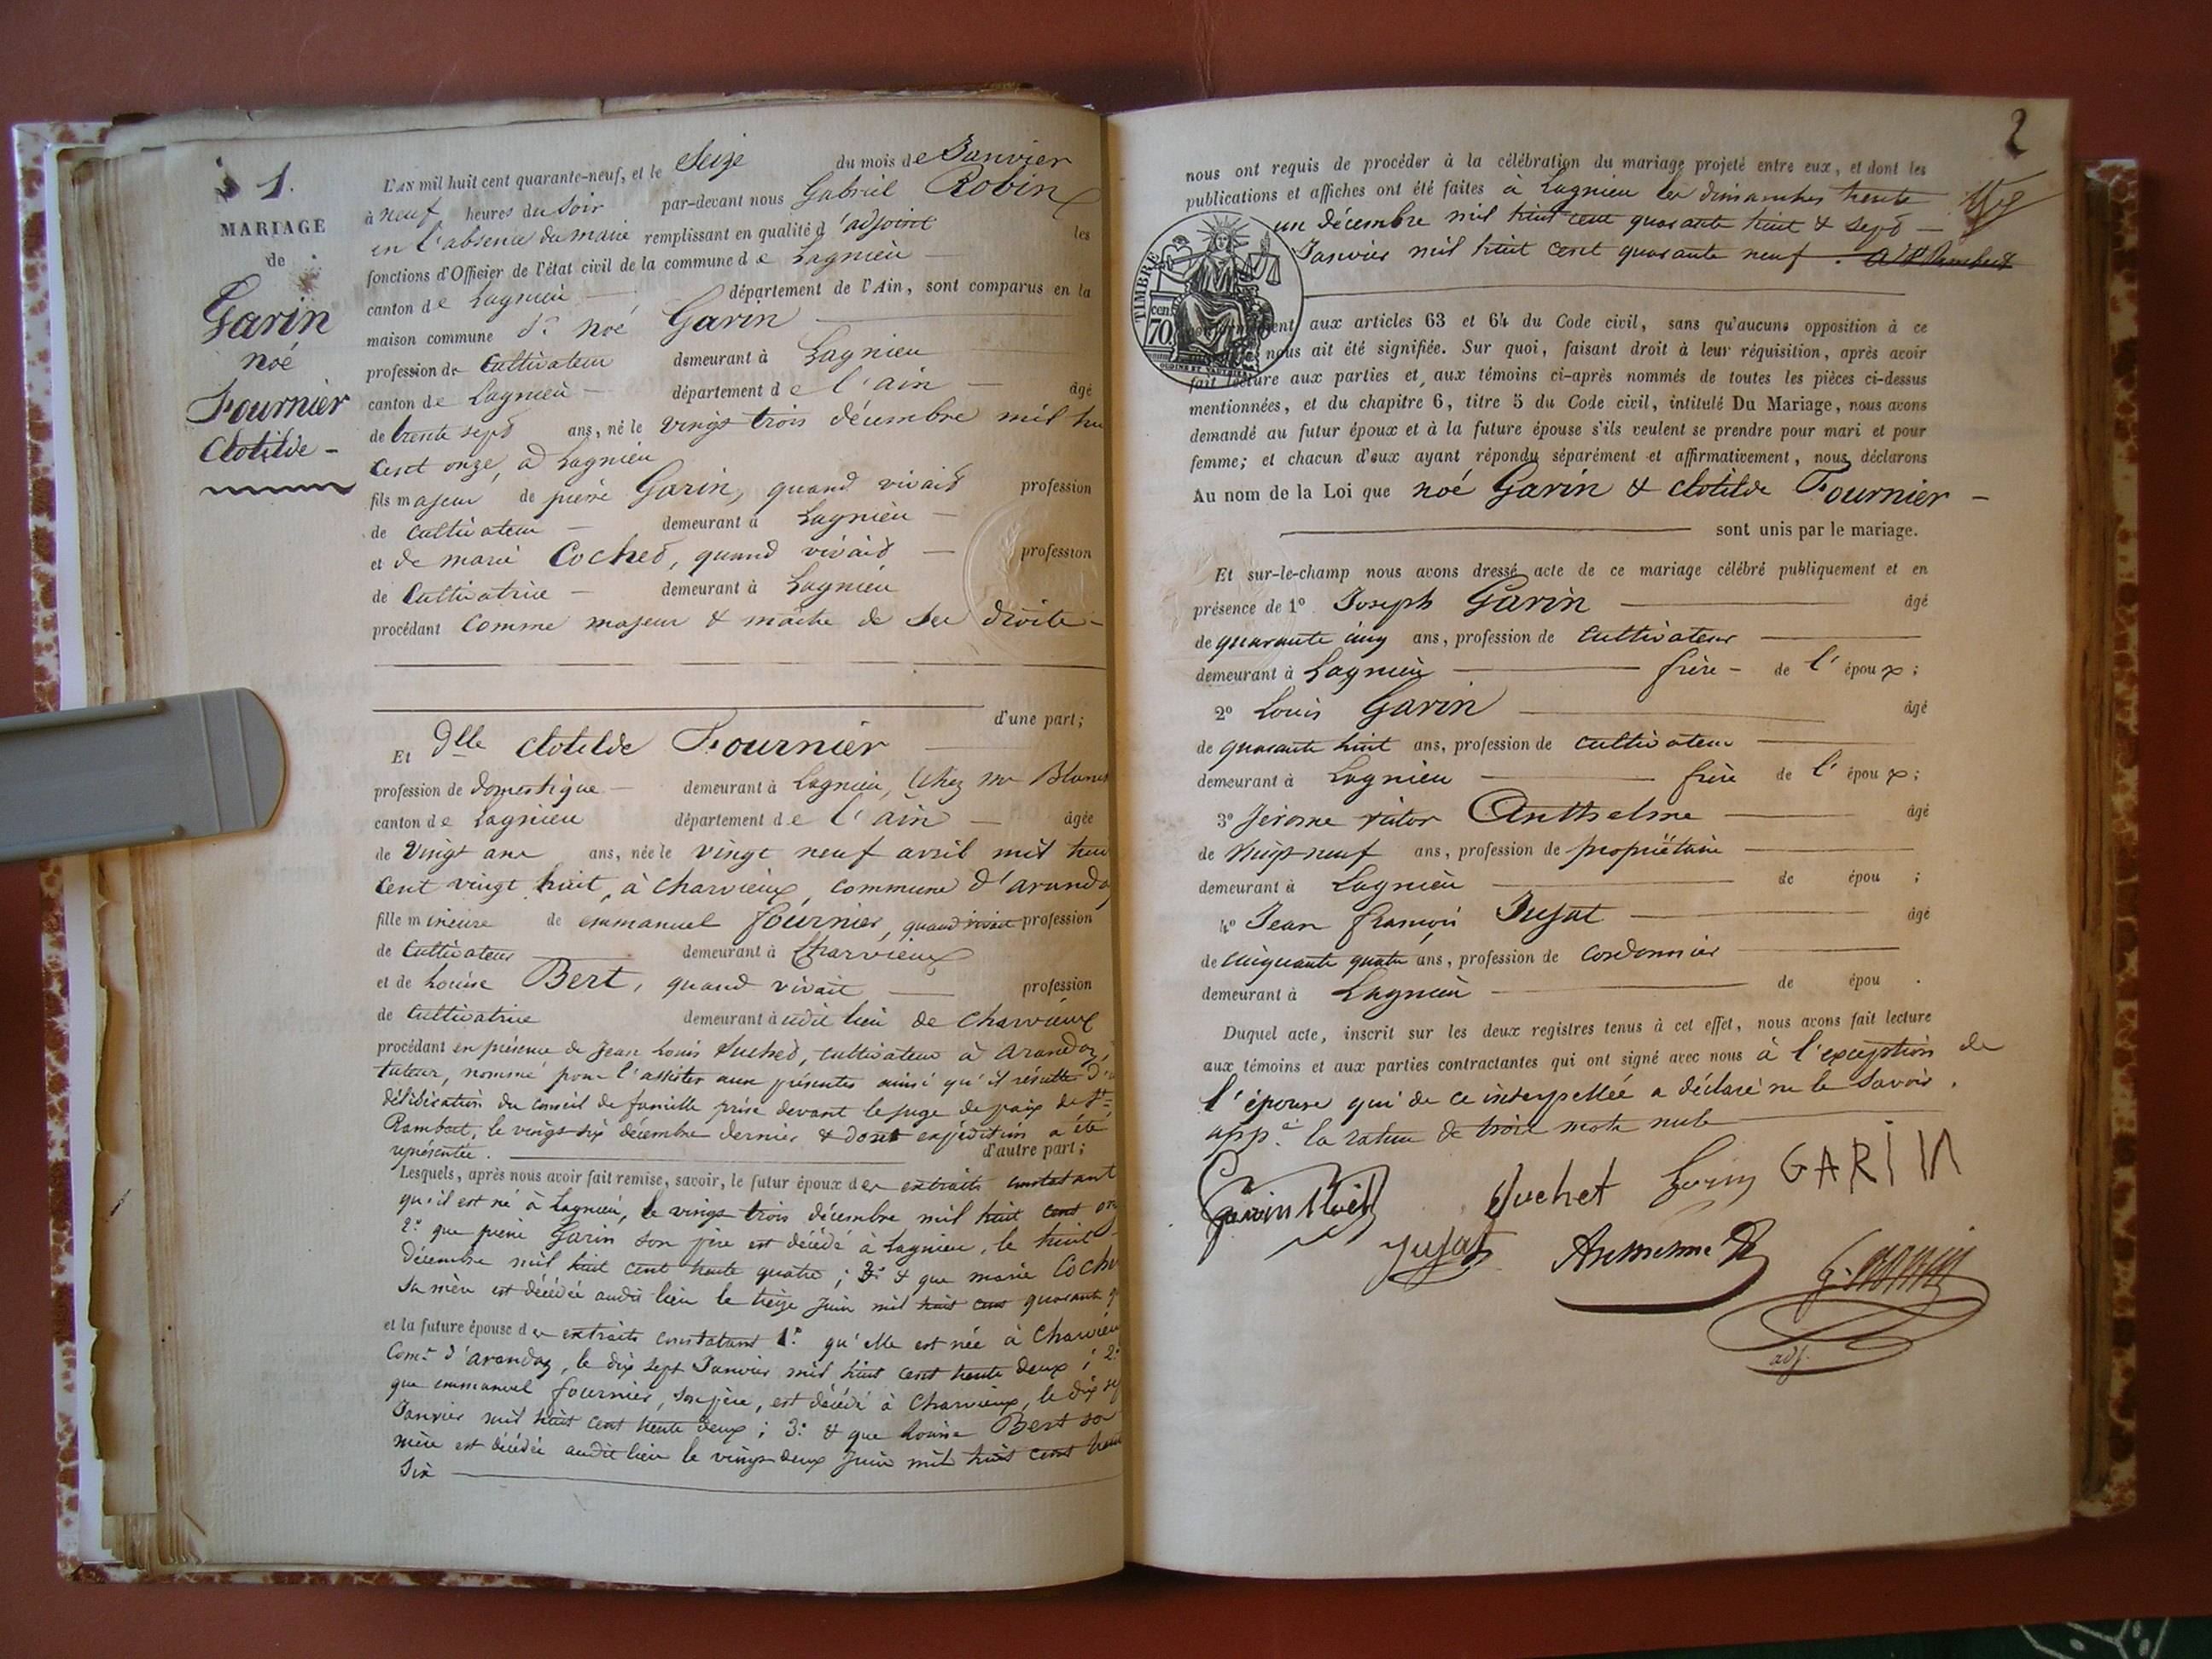 1.
MARIAGE
de
Garin
noé
Fournier
Clotilde -
L'AN mil huit cent quarante-neuf, et le Seize du mois de Janvier
à neuf heures du soir par-devant nous Gabriel Robin
en l'absence du maire remplissant en qualité d'adjoint les
fonctions d'Officier de l'état civil de la commune de Lagnieu
canton de Lagnieu département de l'Ain, sont comparus en la
maison commune Sr noé Garin
profession de Cultivateur demeurant à Lagnieu
canton de Lagnieu département de l'ain âgé
de trente sept ans, né le vingt trois décembre mil hui
cent onze, à Lagnieu
fils majeur de pierre Garin, quand vivait profession
de cultivateur demeurant à Lagnieu
et de marie Cochet, quand vivait profession
de Cultivatrice demeurant à Lagnieu
procédant comme majeur & maitre de ses droits
d'une part;
Et Dlle Clotilde Fournier
profession de domestique demeurant à Lagnieu, chez Mr
canton de Lagnieu département de l'ain âgée
de vingt ans ans, née le vingt neuf avril mil hui
cent vingt huit, à charvieux, commune d'arandas
fille mineure de emmanuel fournier, quand vivait profession
de Cultivateur demeurant à Charvieux
et de Louise Bert, quand vivait profession
de Cultivatrice demeurant à udit lieu de Charvieux
procédant en présence de Jean Louis Suchet, cultivateur à Arandas,
tuteur, nommé pour l'assister aux présentes ainsi qu'il résulte d'u
délibération du conseil de famille prise devant le juge de paix de St
Rambert, le vingt six décembre dernier & dont expédition a été
représentée. d'autre part;
Lesquels, après nous avoir fait remise, savoir, le futur époux des extraits constatant
qu'il est né à Lagnieu, le vingt trois décembre mil huit cent on
2° que pierre Garin son père est décédé à Lagnieu, le huit
décembre mil huit cent trente quatre; 3° & que marie Coch
sa mère est décédée audit lieu le treize Juin mil huit cent quarante q
et la future épouse des extraits constatant 1° qu'elle est née à Charvieu
Come d'arandas, le dix sept Janvier mil huit cent trente deux; 2°
que emmanuel fournier, son père, est décédé à Charvieux, le dix sep
Janvier mil huit cent trente deux; 3° & que Louise Bert sa
mère est décédée audit lieu le vingt deux Juin mil huit cent trent
six
2
nous ont requis de procéder à la célébration du mariage projeté entre eux, et dont les
publications et affiches ont été faites à Lagnieu les dimanches trente
un décembre mil huit cent quarante huit & sept
Janvier mil huit cent quarante neuf. a St Rambert
TIMBRE
70 cen.
conformément aux articles 63 et 64 du Code civil, sans qu'aucune opposition à ce
nous ait été signifiée. Sur quoi, faisant droit à leur réquisition, après avoir
fait lecture aux parties et aux témoins ci-après nommés de toutes les pièces ci-dessus
mentionnées, et du chapitre 6, titre 5 du Code civil, intitulé Du Mariage, nous avons
demandé au futur époux et à la future épouse s'ils veulent se prendre pour mari et pour
femme; et chacun d'eux ayant répondu séparément et affirmativement, nous déclarons
Au nom de la Loi que noé Garin & clotilde Fournier -
sont unis par le mariage.
Et sur-le-champ nous avons dressé acte de ce mariage célébré publiquement et en
présence de 1° Joseph Garin âgé
de quarante cinq ans, profession de cultivateur
demeurant à Lagnieu frère - de l'époux;
2° Louis Garin âgé
de quarante huit ans, profession de cultivateur
demeurant à Lagnieu frère de l'époux;
3° Jérome victor Anthelme âgé
de Vingt-neuf ans, profession de propriétaire
demeurant à Lagnieu de épou ;
4° Jean françois Jujat âgé
de Cinquante quatre ans, profession de cordonnier
demeurant à Lagnieu de épou .
Duquel acte, inscrit sur les deux registres tenus à cet effet, nous avons fait lecture
aux témoins et aux parties contractantes qui ont signé avec nous à l'exception de
l'épouse qui de ce interpellée a déclaré ne le savoir.
app.é la rature de trois mots nuls
Garin Noé Suchet Garin GARIN
Jujat Anthelme G. Robin
adj.